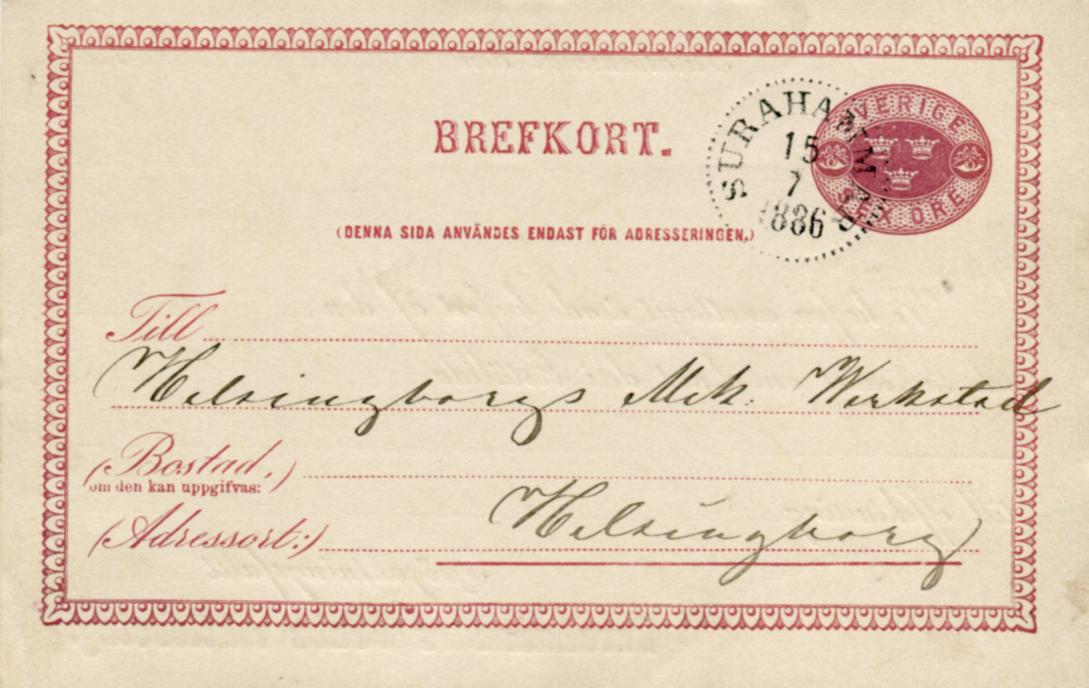 BREFKORT.
SVERIGE
SEX ÖRE
SURAHAMMAR
15
7
1886
(DENNA SIDA ANVÄNDES ENDAST FÖR ADRESSERINGEN.)
Till
Helsingborgs Mek. Werkstad
(Bostad,)
om den kan uppgifvas:
(Adressort:)
Helsingborg